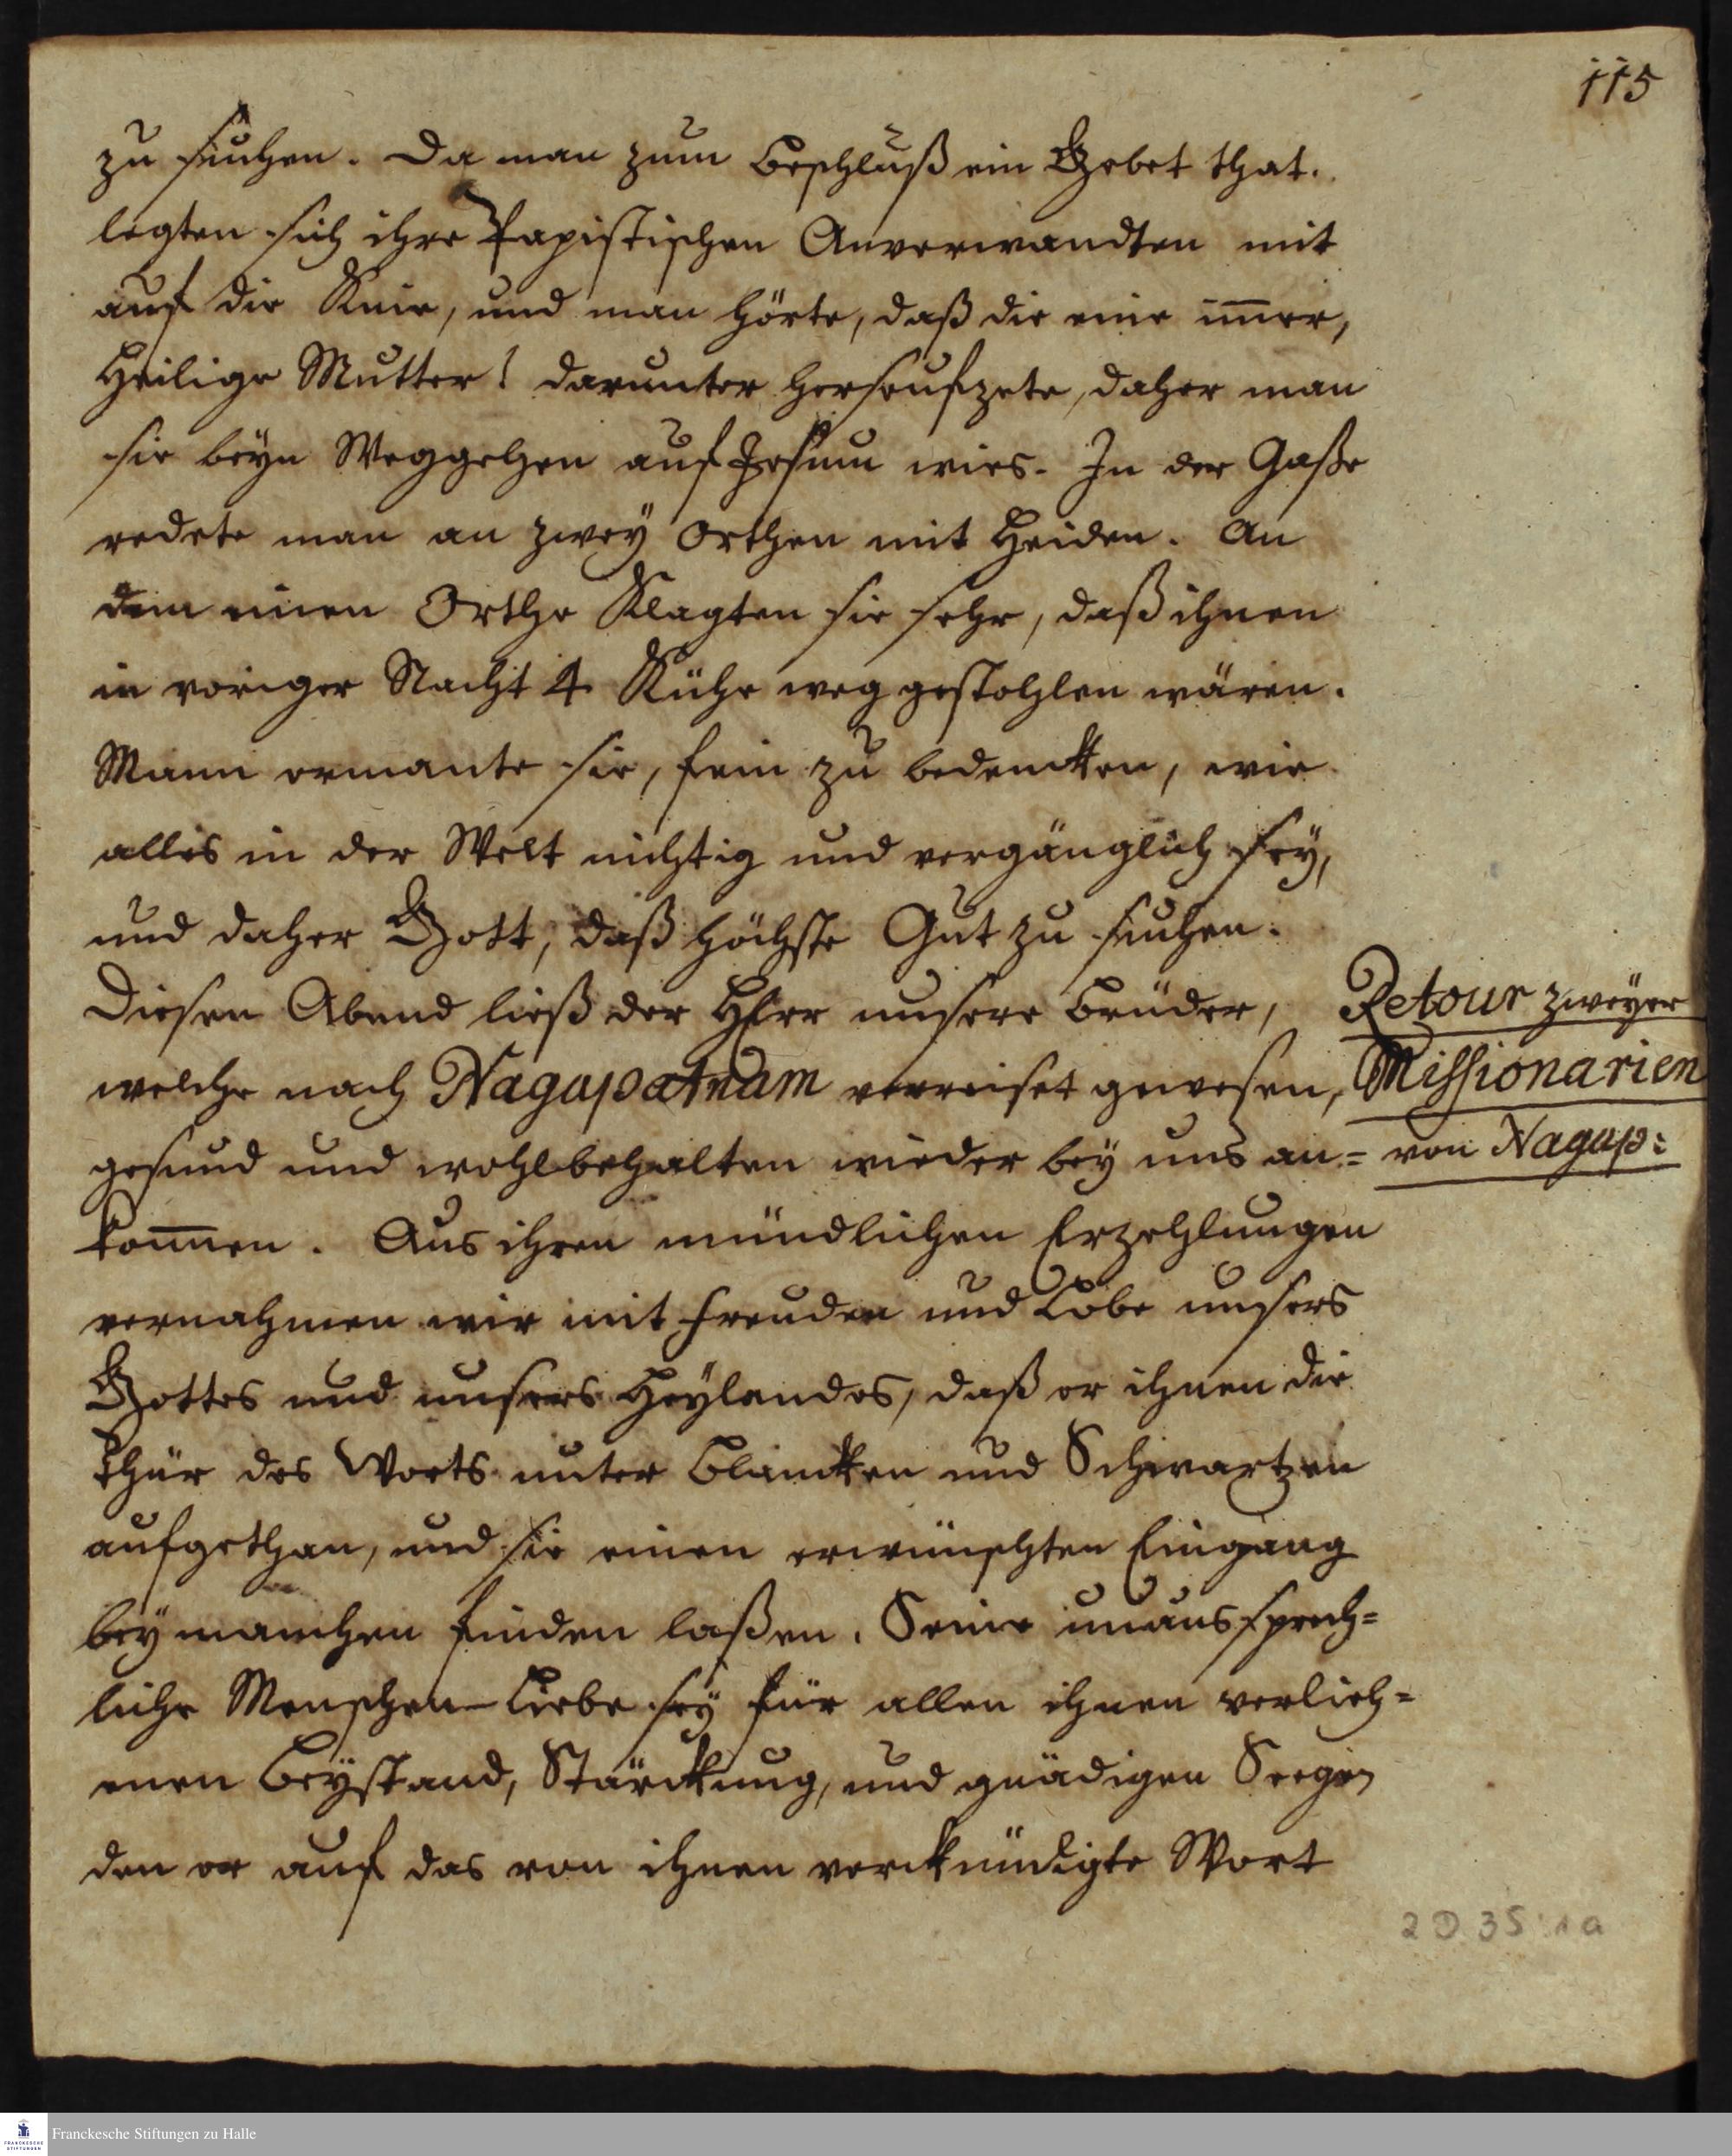 115
zu suchen. Da man zum Beschluß ein Gebet that.
legten sich ihre Papistischen Anverwandten mit
auf die Knie, und man hörte, daß die eine im̅er,
Heilige Mutter! darunter herseufzete, daher man
sie beÿn Weggehen auf Jesum wies. In der Gaße
redete man an zweÿ Orthen mit Heiden. An
dem einen Orthe Klagten sie sehr, daß ihnen
in voriger Nacht 4 Kühe weg gestohlen wären.
Mann ermante sie, fein zu bedencken, wie
alles in der Welt nichtig und vergänglich seÿ,
und daher Gott, daß höchste Gut zu suchen.
Diesen Abend ließ der HErr unsere Brüder,
welche nach Nagapatnam verreiset gewesen,
gesund und wohlbehalten wieder beÿ uns an=
kom̅men. Aus ihren mündlichen Erzehlungen
vernahmen wir mit Freuden und Lobe unsers
Gottes und unsers Heÿlandes, daß er ihnen die
Thür des Worts unter Blancken und Schwartzen
aufgethan, und sie einen erwünschten Eingang
beÿ manchen finden laßen. Seine unaussprech=
liche Menschen-Liebe seÿ für allen ihnen verlieh=
enen Beÿstand, Stärckung, und gnädigen Seegen
den er auf das von ihnen verckündigte Wort
Retour zweÿer
Missionarien
von Nagap:
2 D 35 : 1a
Franckesche Stiftungen zu Halle
FRANCKESCHE
STIFTUNGEN